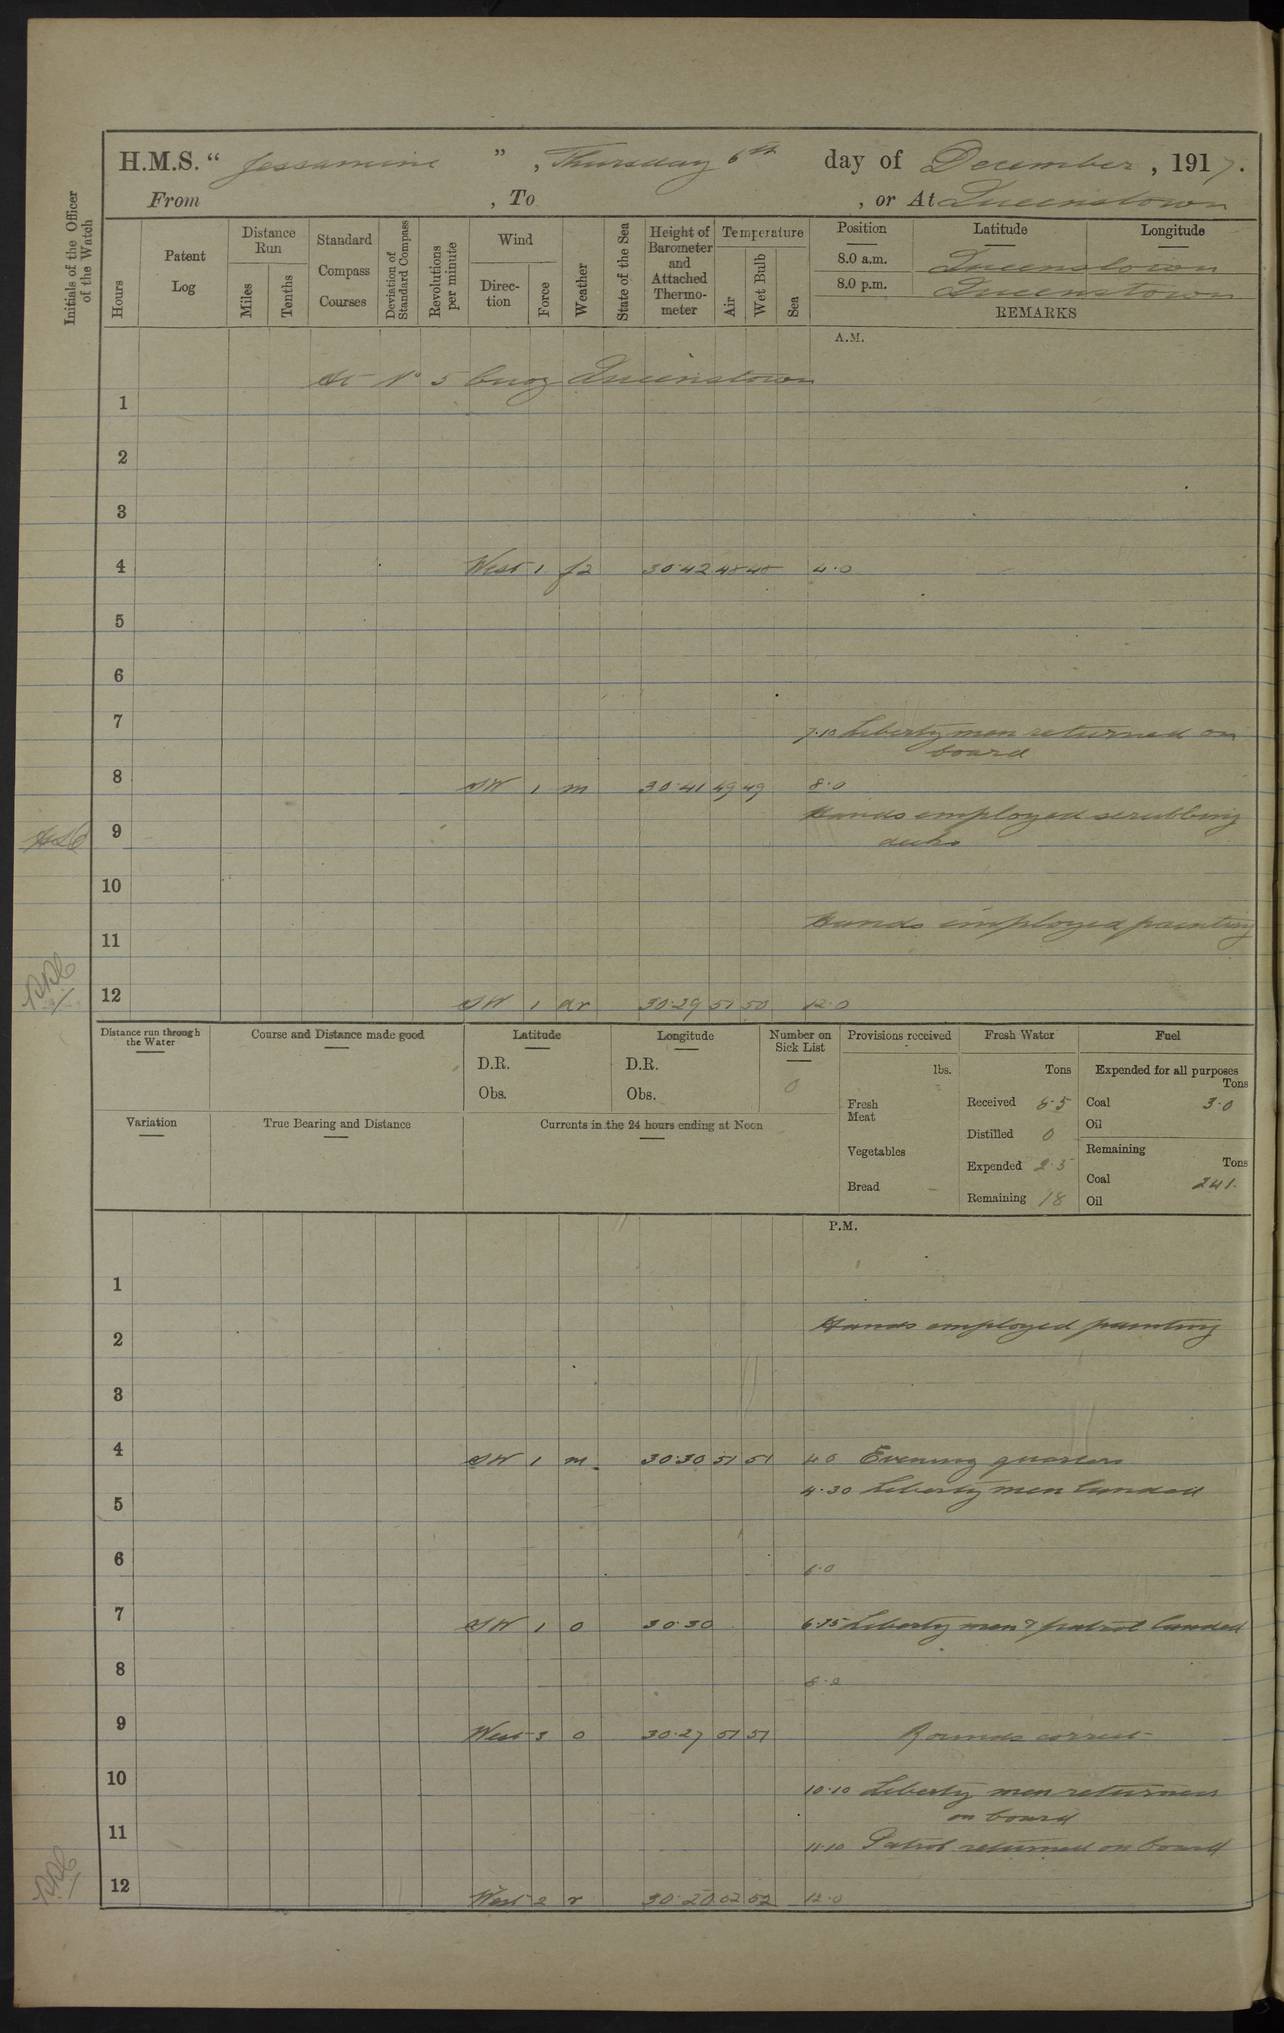 H.M.S. " Jessamine ", Thursday 6th day of December, 1917.
From , To , or At Queenstown
Initials of the Officer of the Watch
Hours
Patent Log
Distance Run
Miles
Tenths
Standard Compass Courses
Deviation of Standard Compass
Revolutions per minute
Wind
Direction
Force
Weather
State of the Sea
Height of Barometer and Attached Thermometer
Temperature
Air
Wet Bulb
Sea
Position Latitude Longitude
8.0 a.m. Queenstown
8.0 p.m. Queenstown
REMARKS
A.M.
At No 5 buoy Queenstown
1
2
3
4 West 1 f2 30.42 48 48 4.0
5
6
7
7.10 Liberty men returned on
board
8 SW 1 m 30.41 49 49 8.0
Hands employed scrubbing
9
decks
10
Hands employed painting
11
12 SW 1 dr 30.29 51 50 12.0
Distance run through the Water
Course and Distance made good
Latitude
D.R.
Obs.
Longitude
D.R.
Obs.
Number on Sick List
0
Provisions received
lbs.
Fresh Meat
Vegetables
Bread –
Fresh Water
Tons
Received 6.5
Distilled 0
Expended 2.5
Remaining 18
Fuel
Expended for all purposes
Tons
Coal 3.0
Oil
Remaining
Tons
Coal 241.
Oil
Variation
True Bearing and Distance
Currents in the 24 hours ending at Noon
P.M.
1
Hands employed painting
2
3
4 SW 1 m. 30.30 51 51 4.0 Evening quarters
4.30 Liberty men landed
5
6
6.0
7 SW 1 o 30.30 6.15 Liberty men & patrol landed
8
8.0
9 West 3 o 30.27 51 51 Rounds correct
10
10.10 Liberty men returned
on board
11
11.10 Patrol returned on board
12 West 2 r 30.20 52 52 12.0